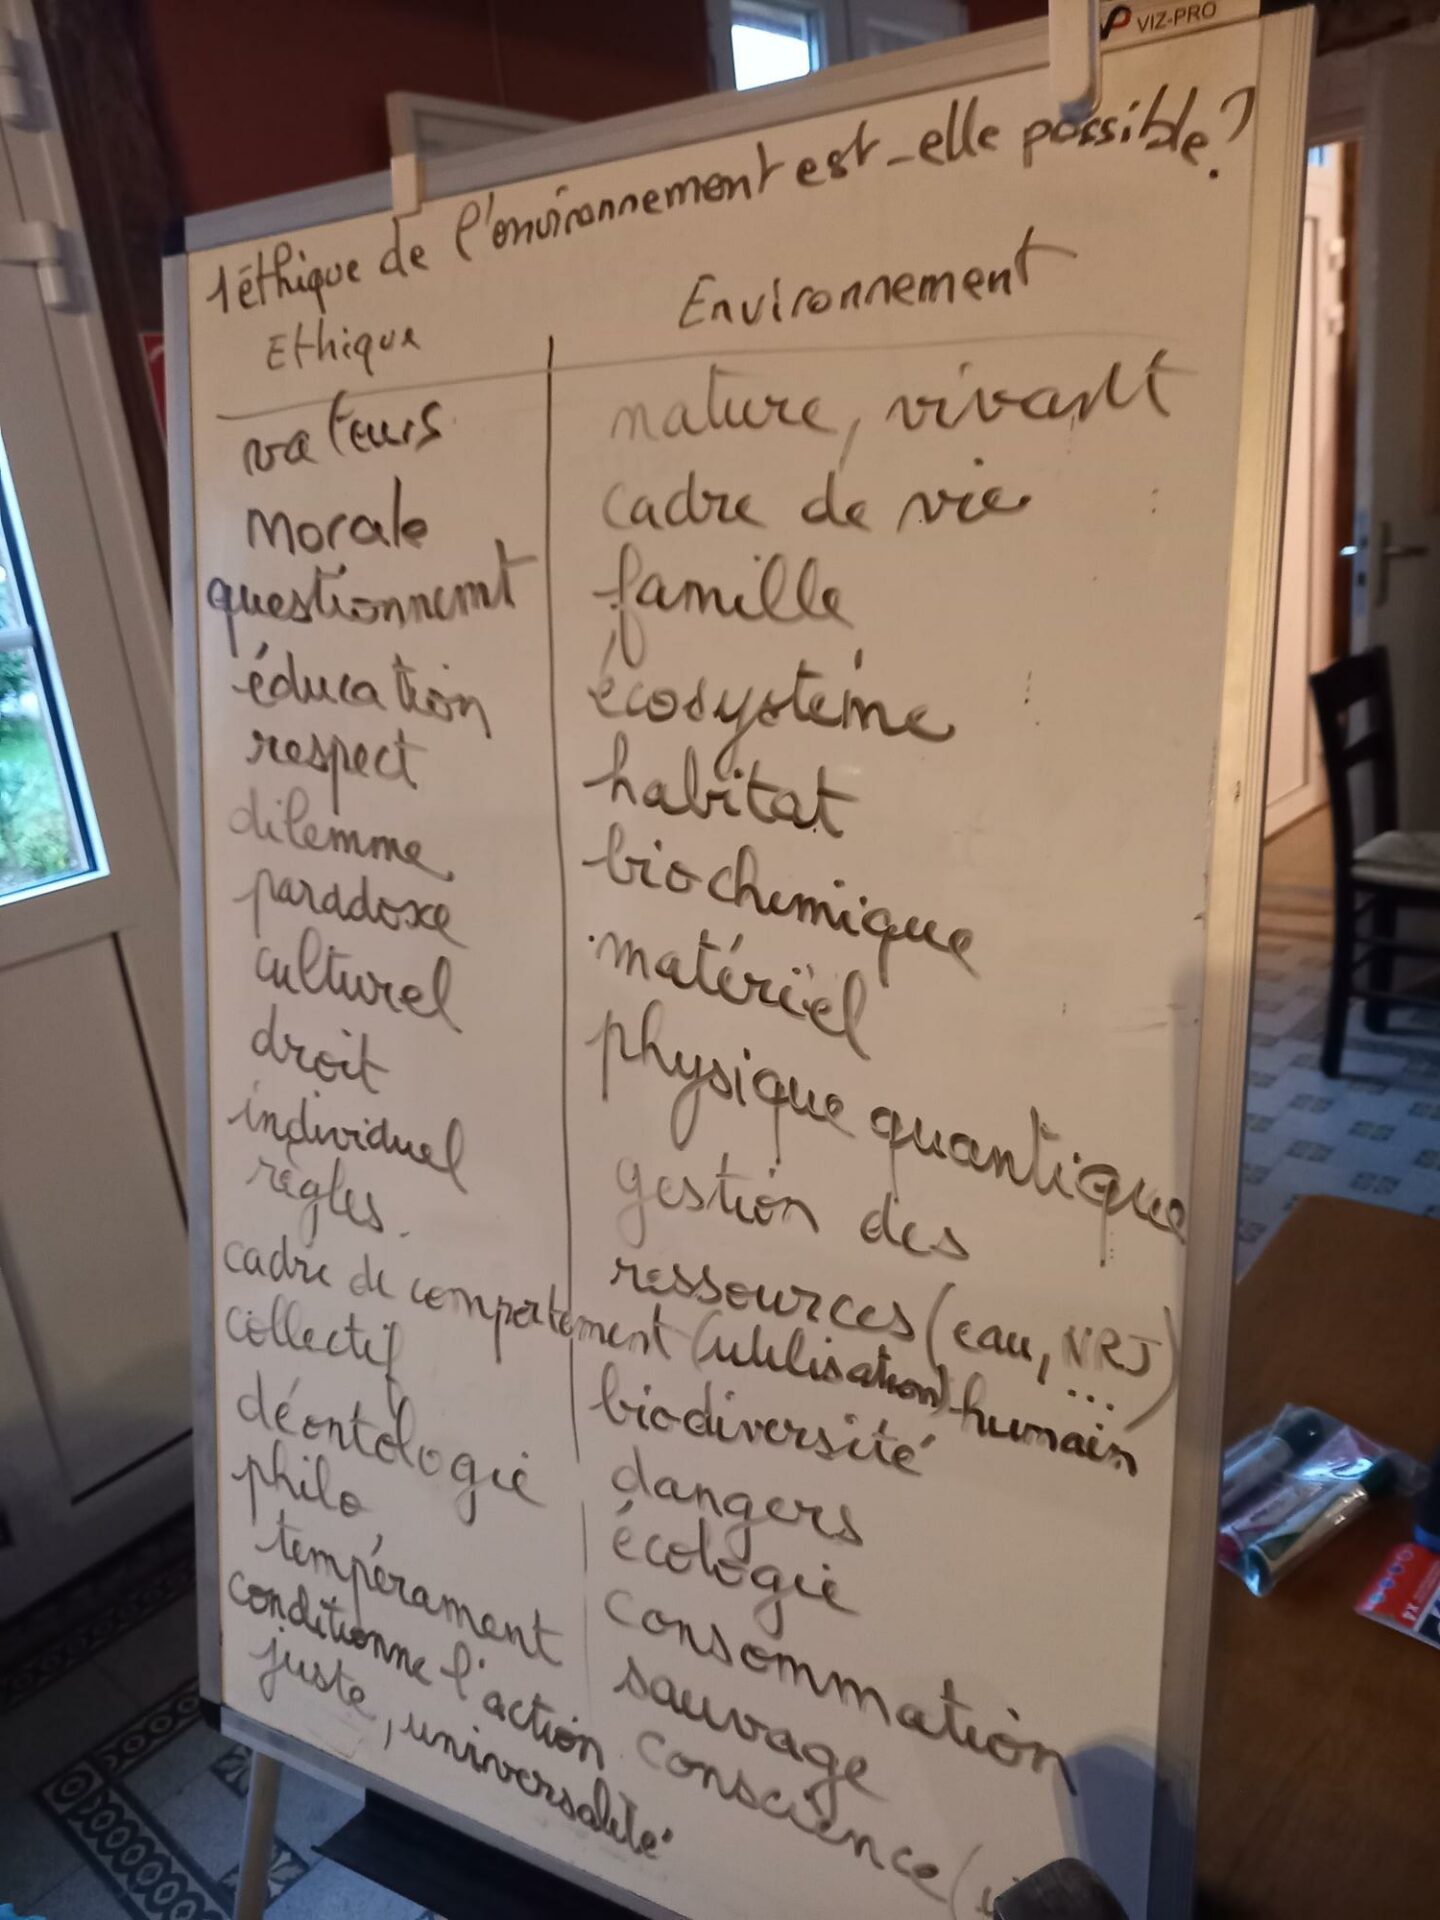 VIZ-PRO
1 éthique de l'environnement est-elle possible?
Ethique
Environnement
valeurs
morale
questionnemt
éducation
respect
dilemme
paradoxe
culturel
droit
individuel
règles.
cadre de comportement (utilisation) humain
collectif
déontologie
philo
tempérament
conditionne l'action
juste, universalité
nature, vivant
cadre de vie
famille
écosystème
habitat
biochimique
matériel
physique quantique
gestion des
ressources (eau, NRJ
...)
biodiversité
dangers
écologie
consommation
sauvage
conscience (
X4